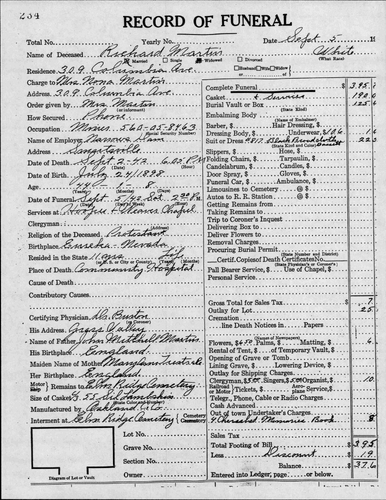 234
RECORD OF FUNERAL
Total No. Yearly No. Date Sept. 5
Name of Deceased Richard Martin White
Married Single Widowed Divorced (What Race)
Residence 309 Columbia Ave. Husband, Wife or Widow
Charge to Mrs. Nona Martin
Address 309 Columbia Ave.
Order given by Mrs. Martin
How Secured Phone
Occupation Miner 565-05-8463
(Social Security Number)
Name of Employer
Address
Date of Death Sept. 2-42 6.05 PM
Date of Birth July 24 1898
Age 44 - 1 - 8
Date of Funeral Sept 5 /42 Sat. 2:30 PM
Services at Hooper & Weaver Chapel
Clergyman
Religion of the Deceased Protestant
Birthplace Eureka - Nevada
Resided in the State
Place of Death Community Hospital
Cause of Death
Contributory Causes
Certifying Physician Dr.
His Address Grass Valley
Name of Father John Mitchell Martin
His Birthplace England
Maiden Name of Mother
Her Birthplace England
Motor Ship Remains to Elm Ridge Cemetery
Size of Casket
(State Color)
Manufactured by Oakland C. Co.
Interment at Elm Ridge Cemetery Cemetery Crematory
Lot No.
Grave No.
Section No.
Owner
Diagram of Lot or Vault
Complete Funeral $ 395
Casket & Services
Burial Vault or Box 125
(State Kind)
Embalming Body
(Name of Embalmer)
Barber, Hair Dressing,
Dressing Body, Underwear,
Suit or Dress
(State Kind and Color)
Slippers, Hose,
Folding Chairs, Tarpaulin,
Candelabrum, Candles,
Door Spray, Gloves,
Funeral Car, Ambulance,
Limousines to Cemetery @
Autos to R. R. Station @
Getting Remains from
Taking Remains to
Trip to Coroner's Inquest
Delivering Box to
Deliver Flowers to
Removal Charges
Procuring Burial Permit
(State Number and District)
Certif. Copies of Death Certificate No.
(State Physician's or Coroner's)
Pall Bearer Service, Use of Chapel,
Personal Service,
Gross Total for Sales Tax
Outlay for Lot 25
Cremation
line Death Notices in Papers
(Names of Newspapers)
Flowers, Palms, Matting, 6
Rental of Tent, of Temporary Vault,
Opening of Grave or Tomb
Lining Grave, Lowering Device,
Outlay for Shipping Charges
Clergyman, Singers, Organist, 10
Railroad Tickets, Motor Service, Aero-Service
Telegr., Phone, Cable or Radio Charges
Cash Advanced
Out of town Undertaker's Charges
Cherished Memories Book 8
Sales Tax
Total Footing of Bill $ 395
Less Discount 19
Balance 376
Entered into Ledger, page or below.